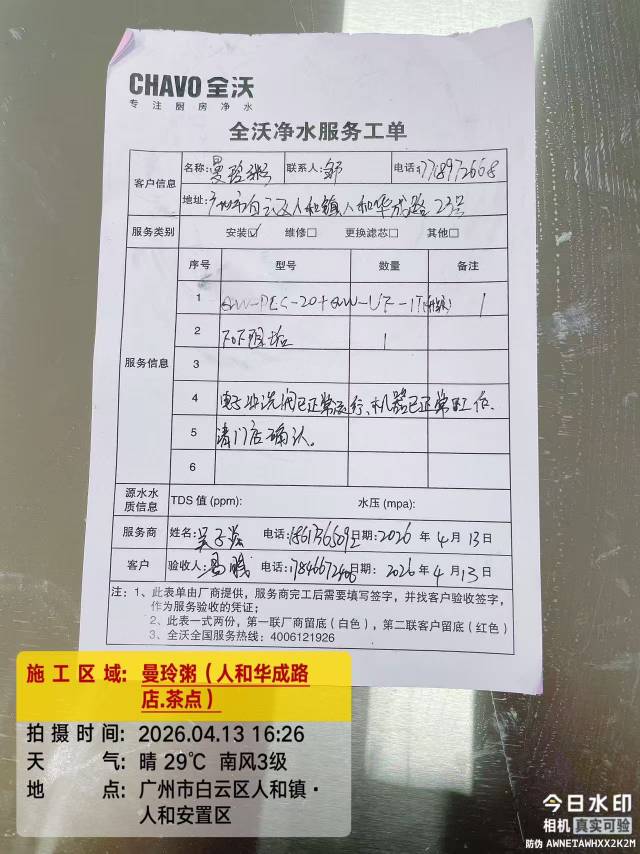 CHAVO 全沃
专注厨房净水
全沃净水服务工单
客户信息
名称: 曼玲粥 联系人: 电话:
地址: 广州市白云区人和镇人和华成路23号
服务类别 安装☑ 维修□ 更换滤芯□ 其他□
服务信息
序号 型号 数量 备注
1 1
2 1
3
4 电子水洗阀已正常运行、机器已正常工作.
5 请门店确认。
6
源水水质信息 TDS 值 (ppm): 水压 (mpa):
服务商 姓名: 电话: 日期: 2026 年 4 月 13 日
客户 验收人: 电话: 日期: 2026 年 4 月 13 日
注: 1、此表单由厂商提供,服务商完工后需要填写签字,并找客户验收签字,
作为服务验收的凭证;
2、此表一式两份,第一联厂商留底(白色),第二联客户留底(红色)
3、全沃全国服务热线: 4006121926
施工区域: 曼玲粥(人和华成路
店.茶点)
拍摄时间: 2026.04.13 16:26
天气: 晴 29℃ 南风3级
地点: 广州市白云区人和镇·
人和安置区
今日水印
相机 真实可验
防伪 AWNETAWHXX2K2M